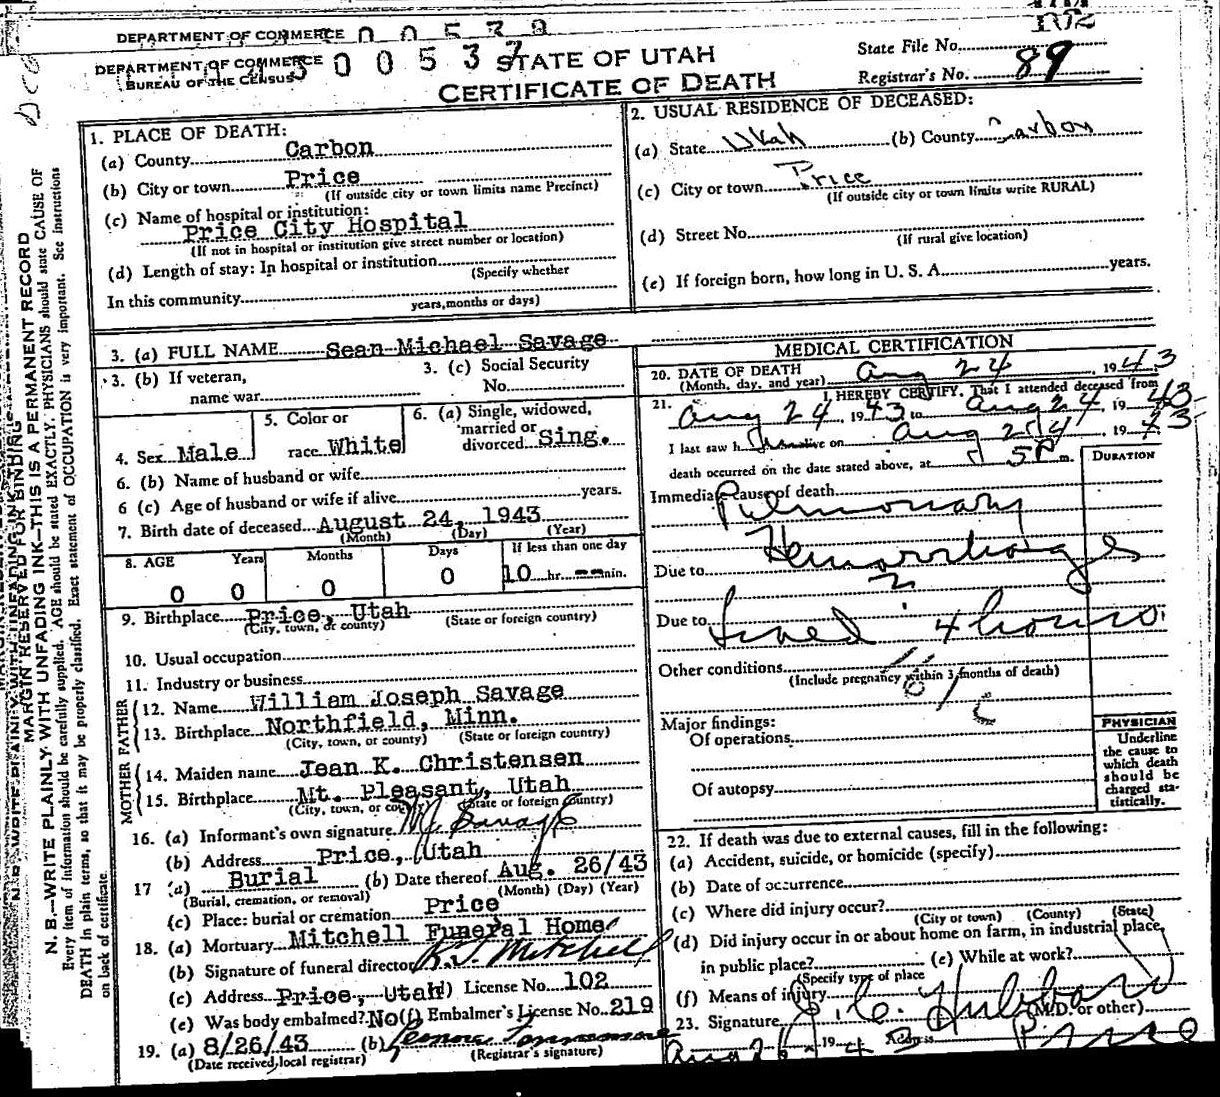 DEPARTMENT OF COMMERCE 0 0 5 3 8
DEPARTMENT OF COMMERCE
BUREAU OF THE CENSUS
0 0 5 3 7
STATE OF UTAH
CERTIFICATE OF DEATH
State File No.
Registrar's No. 89
1. PLACE OF DEATH:
(a) County Carbon
(b) City or town Price
(If outside city or town limits name Precinct)
(c) Name of hospital or institution:
Price City Hospital
(If not in hospital or institution give street number or location)
(d) Length of stay: In hospital or institution
(Specify whether
In this community
years, months or days)
2. USUAL RESIDENCE OF DECEASED:
(a) State Utah (b) County Carbon
(c) City or town Price
(If outside city or town limits write RURAL)
(d) Street No.
(If rural give location)
(e) If foreign born, how long in U. S. A. years.
3. (a) FULL NAME Sean Michael Savage
3. (b) If veteran,
name war
3. (c) Social Security
No.
4. Sex Male
5. Color or
race White
6. (a) Single, widowed,
married or
divorced Sing.
6. (b) Name of husband or wife
6 (c) Age of husband or wife if alive years.
7. Birth date of deceased August 24, 1943
(Month) (Day) (Year)
8. AGE Years Months Days If less than one day
0 0 0 0 10 hr. -- min.
9. Birthplace Price, Utah
(City, town, or county) (State or foreign country)
10. Usual occupation
11. Industry or business
FATHER
12. Name William Joseph Savage
13. Birthplace Northfield, Minn.
(City, town, or county) (State or foreign country)
MOTHER
14. Maiden name Jean K. Christensen
15. Birthplace Mt. Pleasant, Utah
(City, town, or county) (State or foreign country)
16. (a) Informant's own signature W J Savage
(b) Address Price, Utah
17 (a) Burial (b) Date thereof Aug. 26/43
(Burial, cremation, or removal) (Month) (Day) (Year)
(c) Place: burial or cremation Price
18. (a) Mortuary Mitchell Funeral Home
(b) Signature of funeral director Mitchell
(c) Address Price, Utah (d) License No. 102
(e) Was body embalmed? No (f) Embalmer's License No. 219
19. (a) 8/26/43 (b)
(Date received local registrar) (Registrar's signature)
MEDICAL CERTIFICATION
20. DATE OF DEATH
(Month, day, and year) Aug 24, 1943
21. I HEREBY CERTIFY, That I attended deceased from
Aug 24, 1943 to Aug 24, 1943
I last saw h alive on Aug 24, 1943
death occurred on the date stated above, at 5 P m.
DURATION
Immediate cause of death
Pulmonary
Hemorrhage
Due to
Due to Lived 4 hours
Other conditions
(Include pregnancy within 3 months of death)
Major findings:
Of operations
Of autopsy
PHYSICIAN
Underline
the cause to
which death
should be
charged sta-
tistically.
22. If death was due to external causes, fill in the following:
(a) Accident, suicide, or homicide (specify)
(b) Date of occurrence
(c) Where did injury occur?
(City or town) (County) (State)
(d) Did injury occur in or about home on farm, in industrial place,
in public place? (e) While at work?
(Specify type of place
(f) Means of injury
23. Signature J. C. Hubbard (M.D. or other)
Aug 26 1943 Address Price
N. B.—WRITE PLAINLY WITH UNFADING INK—THIS IS A PERMANENT RECORD
MARGIN RESERVED FOR BINDING
Every item of information should be carefully supplied. AGE should be stated EXACTLY. PHYSICIANS should state CAUSE OF
DEATH in plain terms, so that it may be properly classified. Exact statement of OCCUPATION is very important. See instructions
on back of certificate.